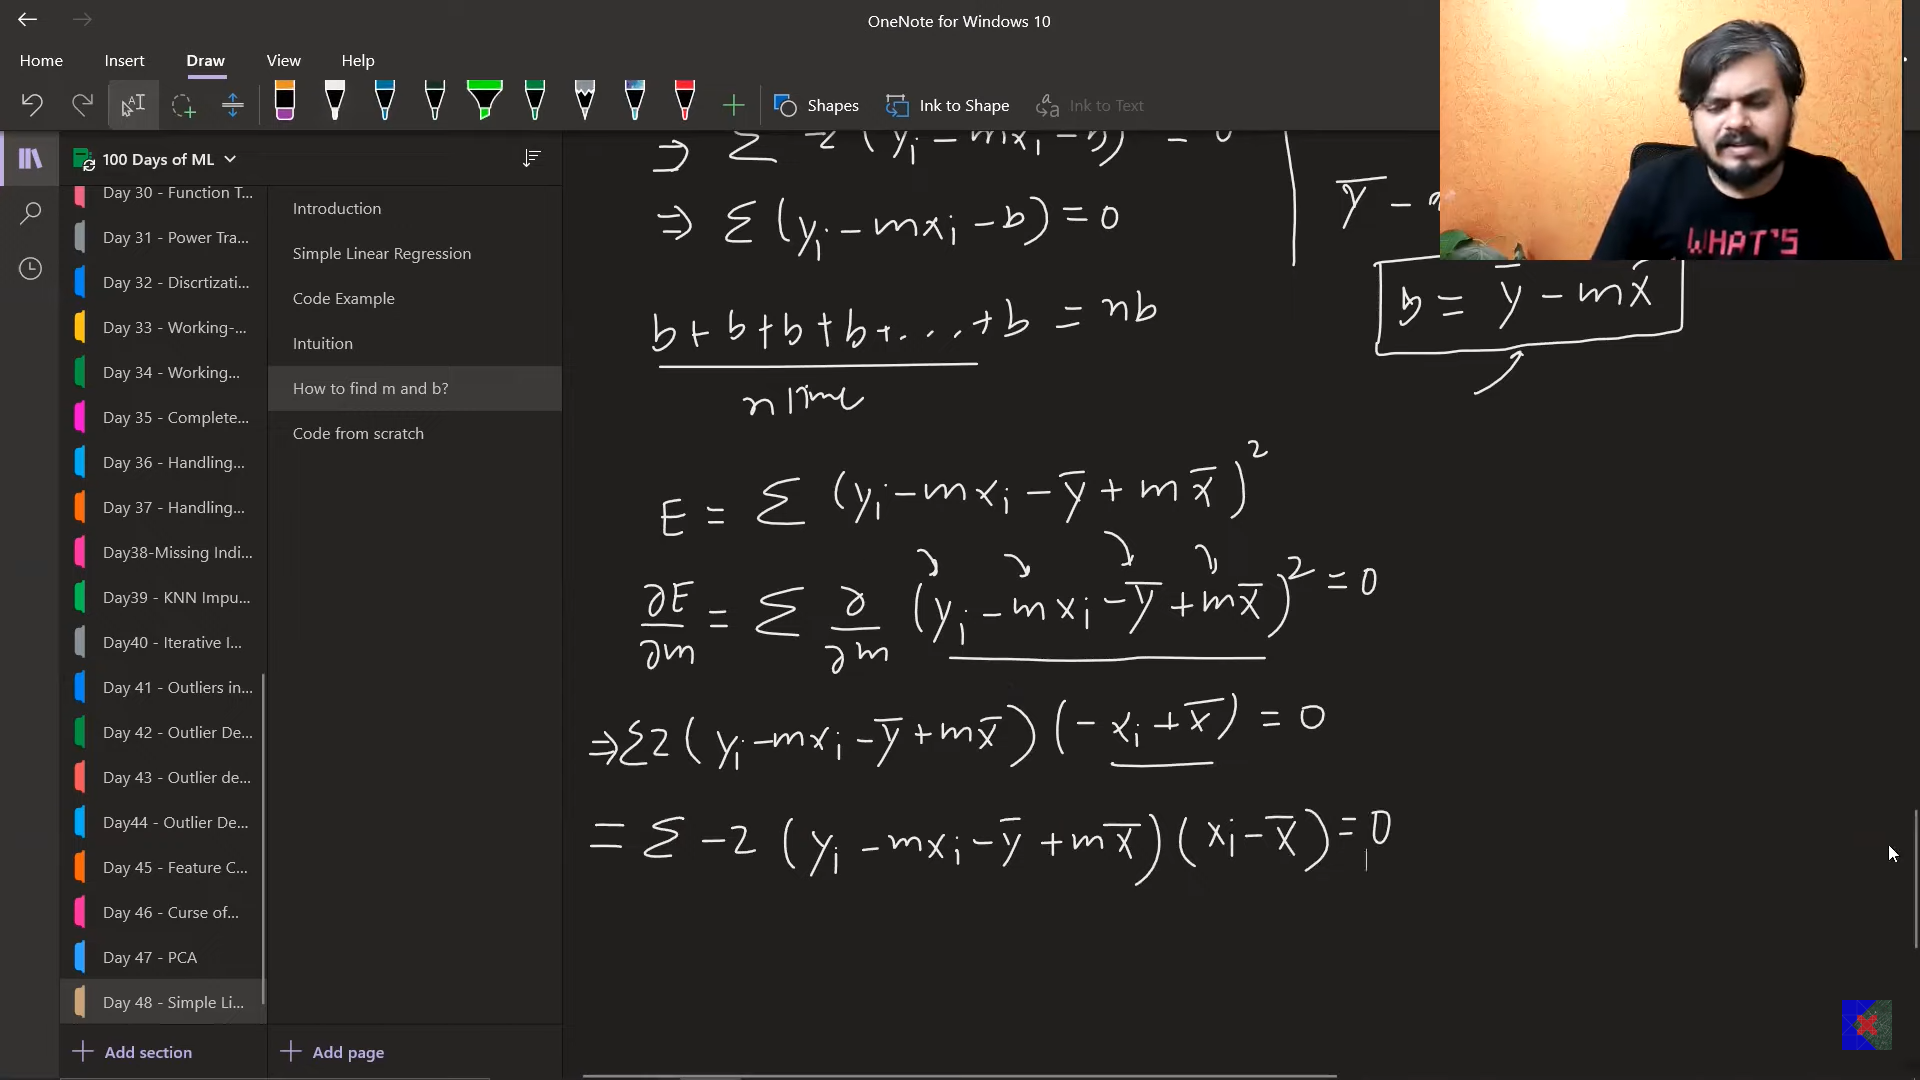 OneNote for Windows 10
Home Insert Draw View Help
Shapes Ink to Shape Ink to Text
100 Days of ML
Day 30 - Function T...
Day 31 - Power Tra...
Day 32 - Discrtizati...
Day 33 - Working-...
Day 34 - Working...
Day 35 - Complete...
Day 36 - Handling...
Day 37 - Handling...
Day38-Missing Indi...
Day39 - KNN Impu...
Day40 - Iterative I...
Day 41 - Outliers in...
Day 42 - Outlier De...
Day 43 - Outlier de...
Day44 - Outlier De...
Day 45 - Feature C...
Day 46 - Curse of...
Day 47 - PCA
Day 48 - Simple Li...
Add section
Introduction
Simple Linear Regression
Code Example
Intuition
How to find m and b?
Code from scratch
Add page
⇒ Σ -2 (yᵢ - mxᵢ - b) = 0
⇒ Σ (yᵢ - mxᵢ - b) = 0
b + b + b + b + ... + b = nb
n time
E = Σ (yᵢ - mxᵢ - ȳ + mx̄)²
∂E/∂m = Σ ∂/∂m (yᵢ - mxᵢ - ȳ + mx̄)² = 0
⇒ Σ2 (yᵢ - mxᵢ - ȳ + mx̄) (-xᵢ + x̄) = 0
= Σ -2 (yᵢ - mxᵢ - ȳ + mx̄) (xᵢ - x̄) = 0
ȳ -
b = ȳ - mx̄
WHAT'S